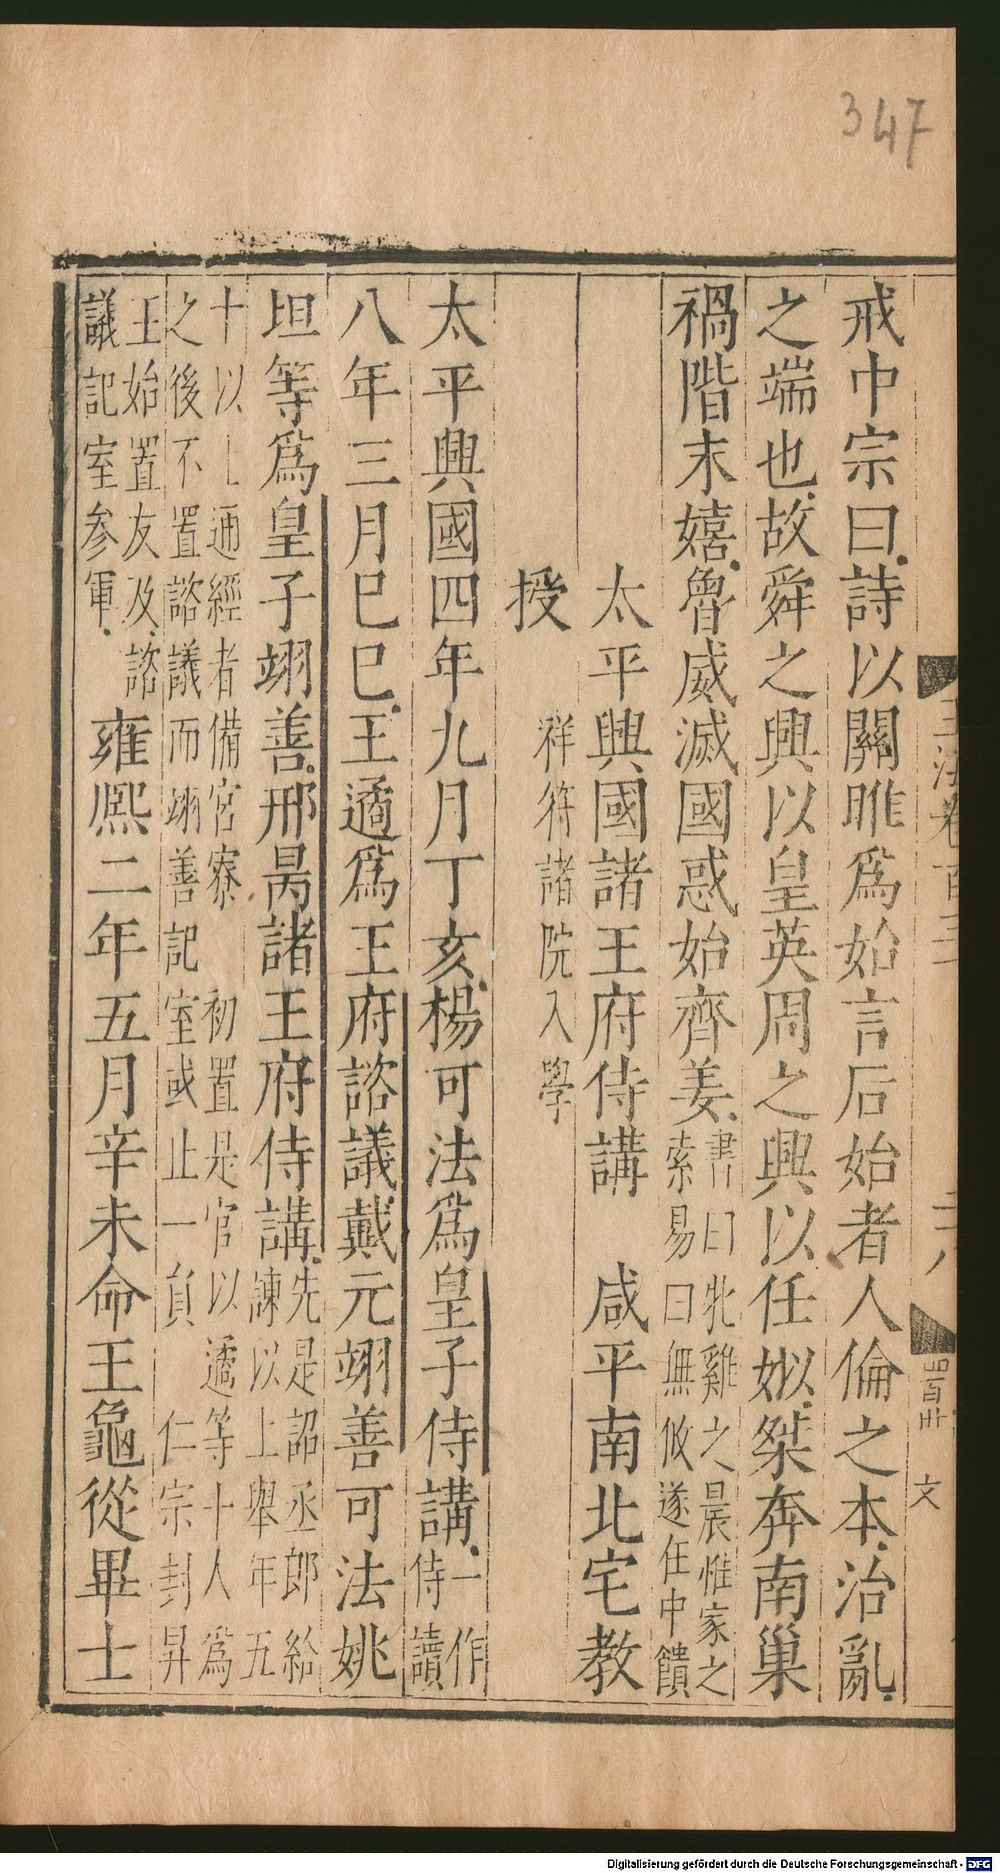 347
戒中宗曰詩以關雎爲始言后始者人倫之本治亂
之端也故舜之興以皇英周之興以任姒桀奔南巢
禍階末嬉魯威滅國惑始齊姜書曰牝雞之晨惟家之
索易曰無攸遂在中饋
太平興國諸王府侍講 咸平南北宅教
授祥符諸院入學
太平興國四年九月丁亥楊可法爲皇子侍講一作
侍讀
八年三月巳巳王遹爲王府諮議戴元翊善可法姚
坦等爲皇子翊善邢昺諸王府侍講先是詔丞郎給
諫以上舉年五
十以上通經者備官寮 初置是官以遹等十人爲
之後不置諮議而翊善記室或止一員 仁宗封昇
王始置友及諮
議記室參軍 雍熙二年五月辛未命王龜從畢士
文
Digitalisierung gefördert durch die Deutsche Forschungsgemeinschaft - DFG